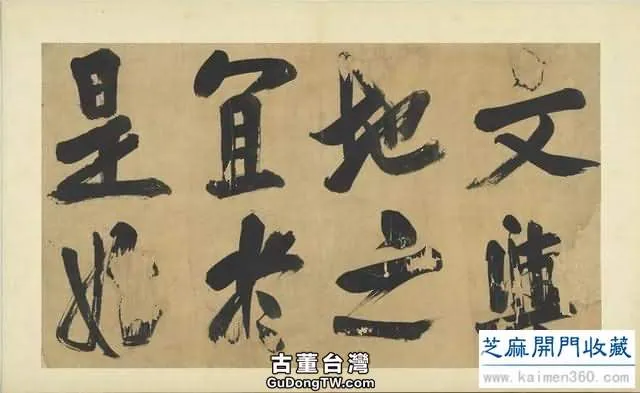 文與
地之
宜於
是始
芝麻開門收藏
www.kaimen360.com
古董台灣
GuDongTW.com